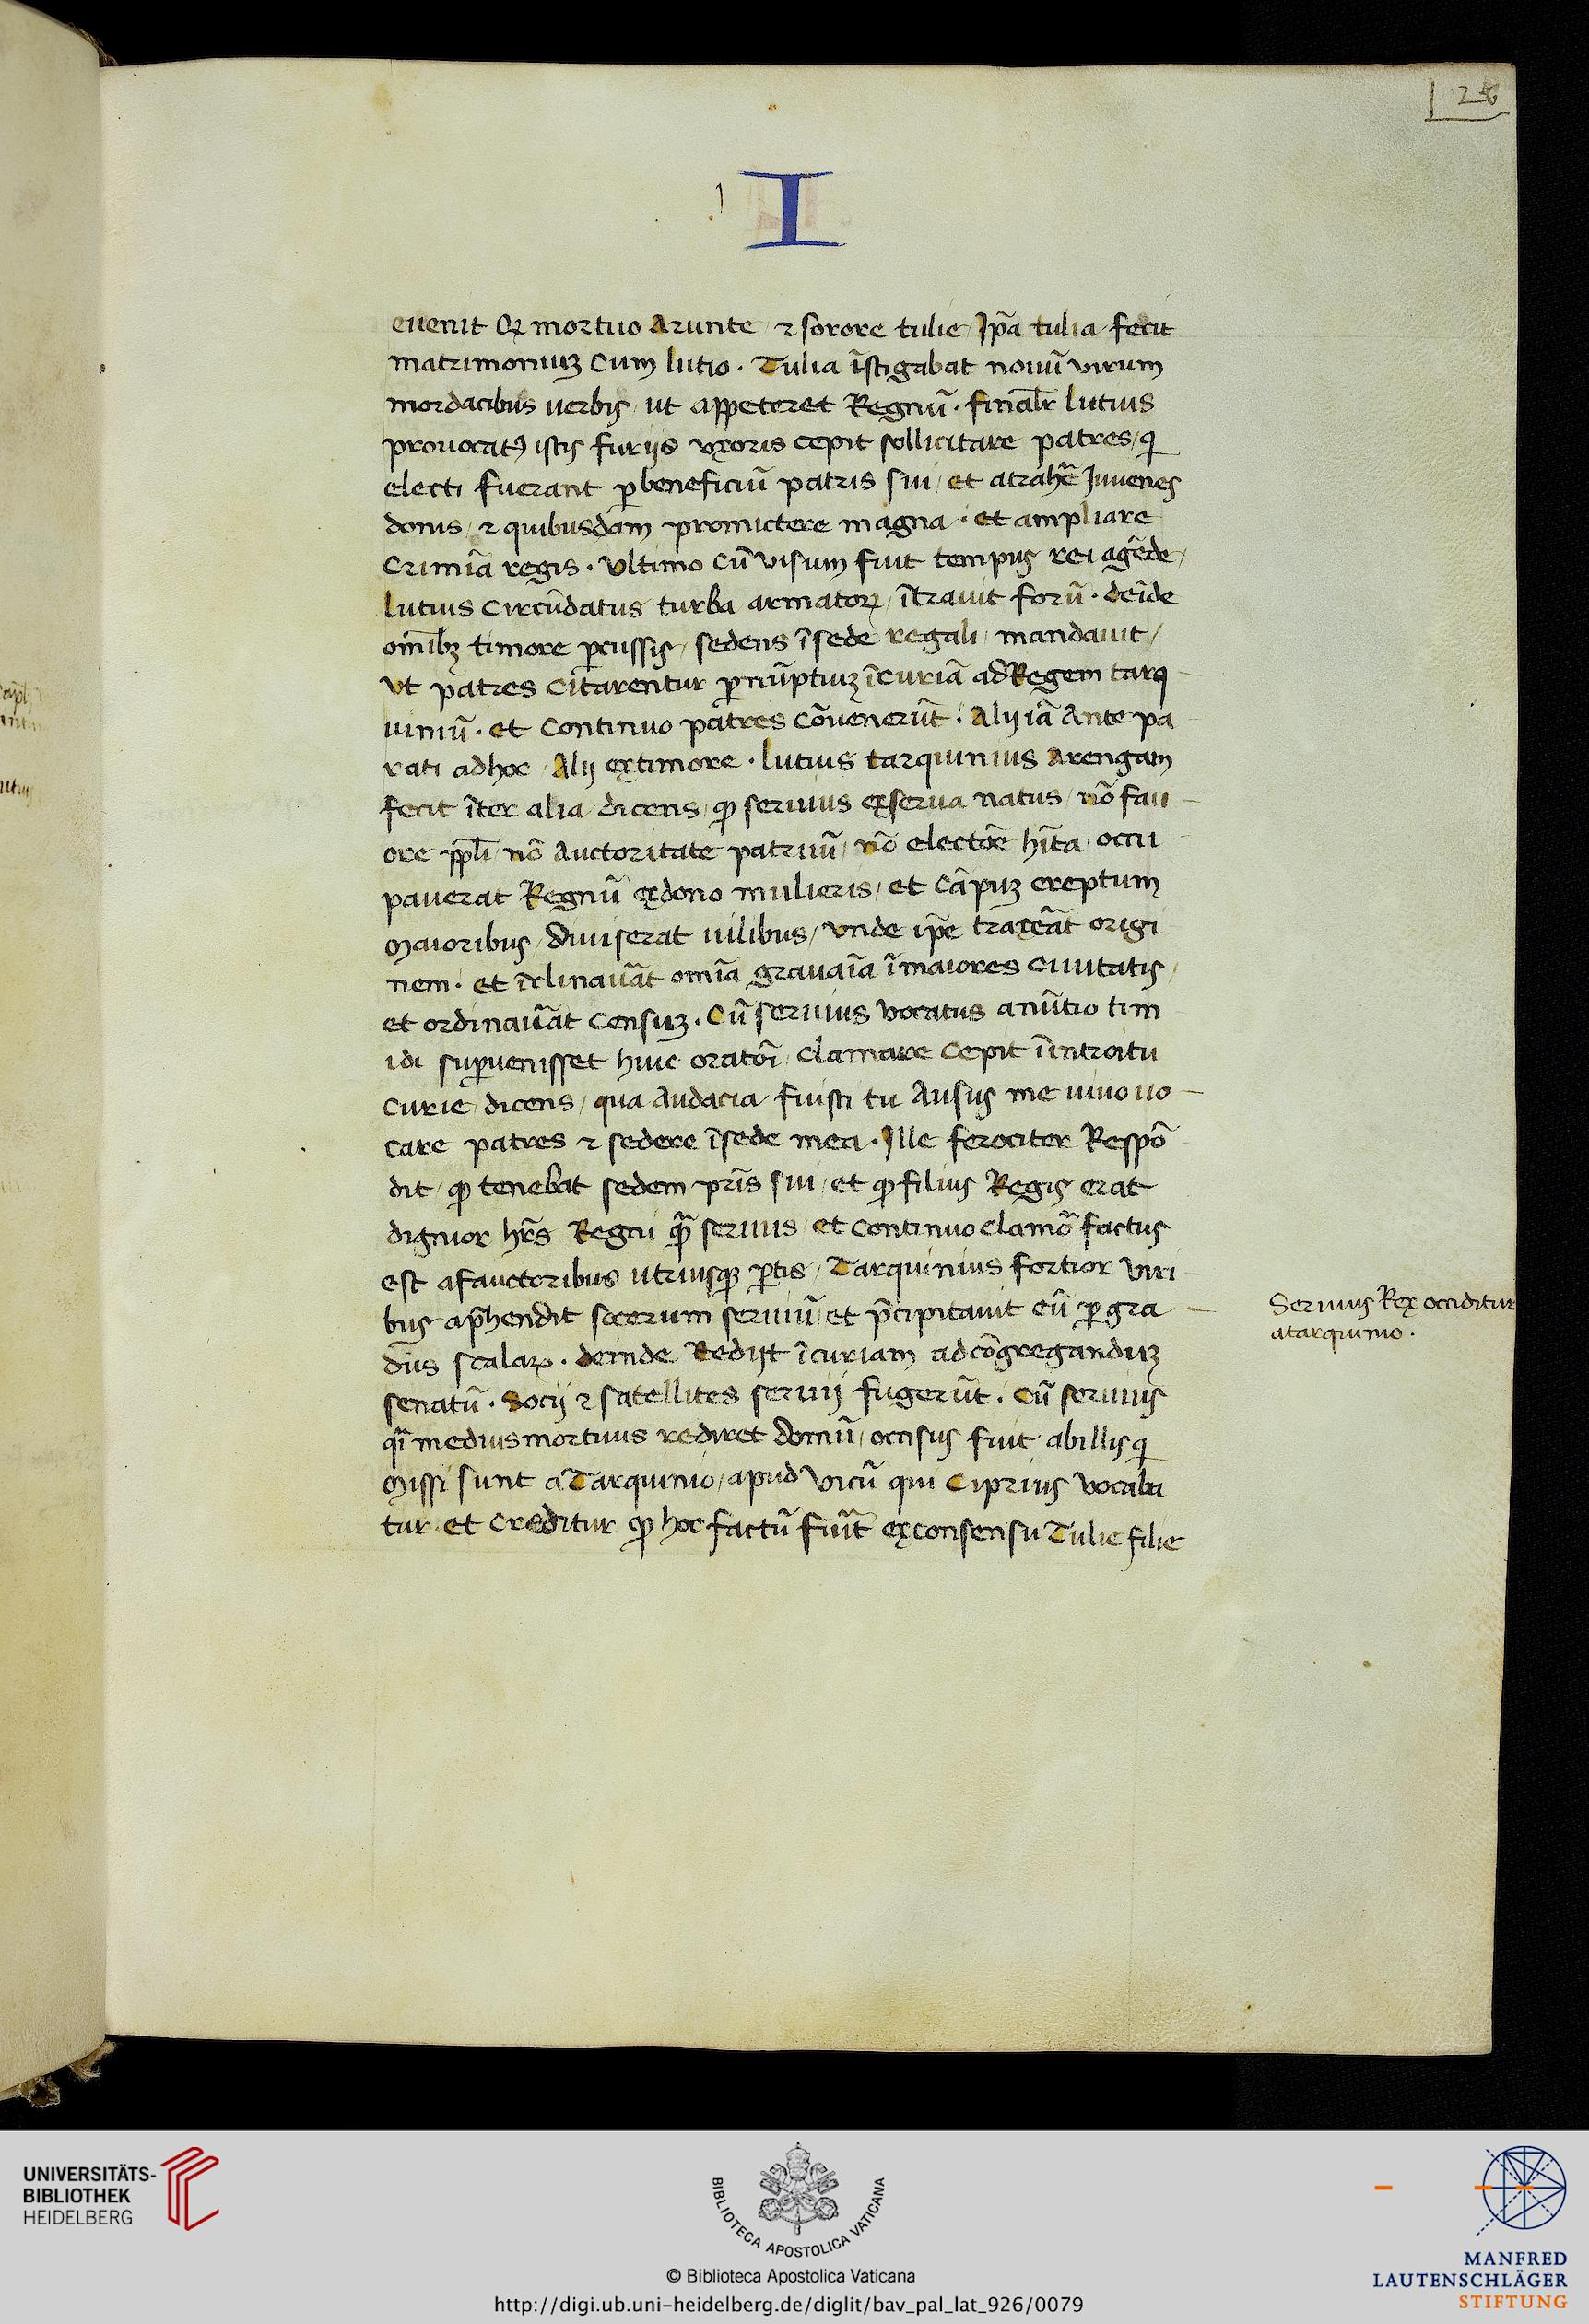 26
I
euenit Qꝛ mortuo Arunte ⁊ sorore tulie Ip̄a tulia fecit
matrimoniuꝫ Cum lutio · Tulia īstigabat nouū virum
mordacibus uerbis ut appeteret Regnū · finalr̄ lutius
prouocatꝰ istis furijs vxoris cepit sollicitare patres qi
electi fuerant ꝑ beneficiū patris sui et atrahē̄ Iuuenes
donis ⁊ quibusdam promictere magna · et ampliare
Crimīa regis · Vltimo Cū visum fuit tempus rei agēde
lutius Circūdatus turba armatoꝝ ītrauit forū · deīde
oīnibꝫ timore ꝑcussis sedens ī sede regali mandauit
Vt patres Citarentur ꝑ nūptiuꝫ ī Curiā ad Regem tarq
uiniū · et Continuo patres Cōuenerūt · Alij iā Ante pa
rati ad hoc Alij ex timore · lutius tarquinius Arengam
fecit īter alia dicens ꝙ seruius ex serua natus nō fau
ore ppl̄i nō Auctoritate patruū nō electōe hīta occu
pauerat Regnū ex dono mulieris et Cāpuꝫ ereptum
Maioribus Diuiserat uilibus vnde ip̄e traxēāt origi
nem · et īclinauāt omīa grauaīa ī maiores Ciuitatis
et ordinauāt Censuꝫ · Cū seruius vocatus a nūtio tim
idi suꝑuenisset huic oratōi Clamare Cepit ī introitu
Curie dicens qua Audacia fuisti tu Ausus me uiuo uo
Care patres ⁊ sedere ī sede mea · Ille ferociter Respō
dit ꝙ tenebat sedem pr̄is sui et ꝙ filius Regis erat
dignior hr̄s Regni qm̄ seruus et Continuo Clamor̄ factus
est a fauctoribus utriusqꝫ ꝑtis Tarquinius fortior Viri
bus ap̄hendit socerum seruiū et p̄cipitauit eū ꝑ gra
dus̄ scalaꝝ · deinde Redijt ī curiam ad cōgreganduꝫ
senatū · Socij ⁊ satellites seruij fugerūt · Cū seruius
qī medius mortuus rediret domū occisus fuit ab illis qi
Missi sunt a Tarquinio apud Vicū qui Ciprius vocaba
tur et Creditur ꝙ hoc factū fuīt ex consensu Tulie filie
Seruius Rex occiditur
a tarquinio ·
UNIVERSITÄTS-
BIBLIOTHEK
HEIDELBERG
BIBLIOTECA APOSTOLICA VATICANA
© Biblioteca Apostolica Vaticana
http://digi.ub.uni-heidelberg.de/diglit/bav_pal_lat_926/0079
MANFRED
LAUTENSCHLÄGER
STIFTUNG